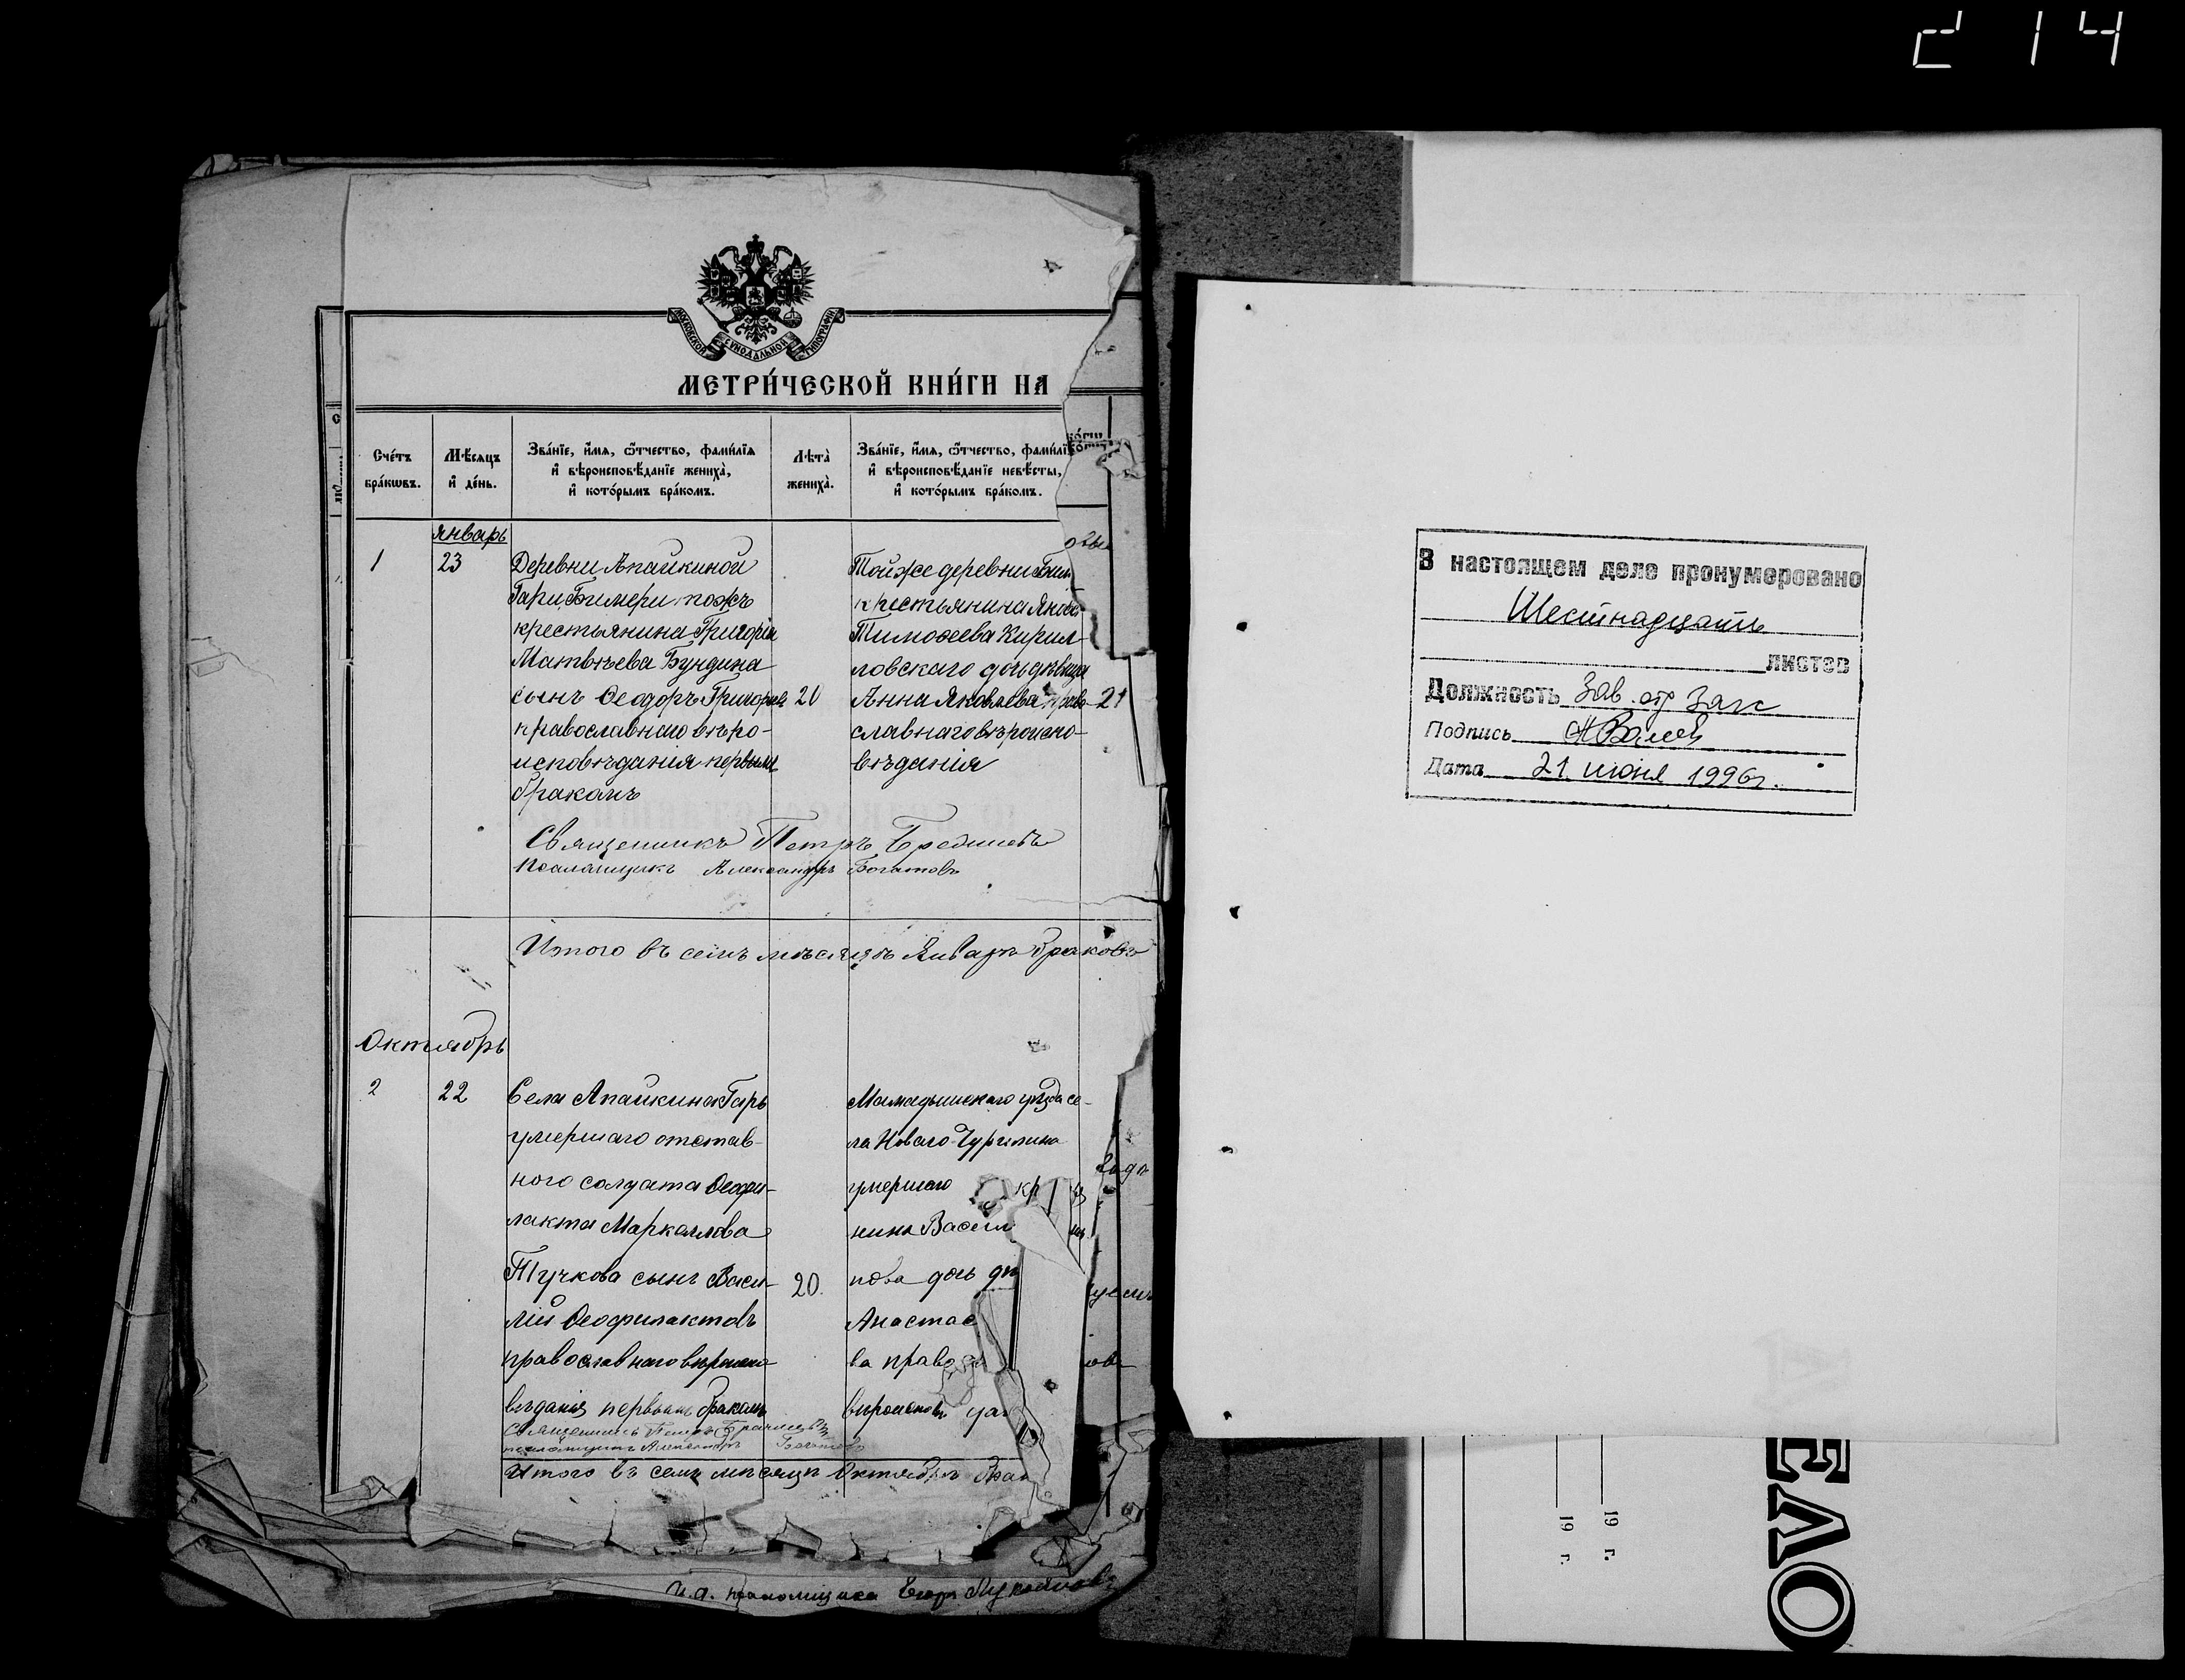 214
МОСКОВСКОЙ СѴНОДАЛЬНОЙ ТИПОГРАФІИ
МЕТРИ́ЧЕСКОЙ КНИ́ГИ НА
Сче́тъ бра́кѡвъ.
Мѣ́сяцъ и҆ де́нь.
Зва́нїе, и҆́мя, ѻ҆́тчество, фами́лїя и҆ вѣроисповѣ́данїе жениха̀, и҆ кото́рымъ бра́комъ.
Лѣ́та жениха̀.
Зва́нїе, и҆́мя, ѻ҆́тчество, фами́лїя и҆ вѣроисповѣ́данїе невѣ́сты, и҆ кото́рымъ бра́комъ.
Январь
1
23
Деревни Апайкиной
Гари, Бимери тожъ
крестьянина Григорія
Матвѣева Бундина
сынъ Ѳеодоръ Григорьевъ
православнаго вѣро-
исповѣданія первымъ
бракомъ
20
Тойже деревни
крестьянина Якова
Тимоѳеева Кирил-
ловскаго дочь дѣвица
Анна Яковлева, право-
славнаго вѣроиспо-
вѣданія
21
Священникъ Петръ
Псаломщикъ Александръ Богатовъ
Итого въ семъ мѣсяцѣ Январѣ браковъ
Октябрь
2
22
Села Апайкина Гарь
умершаго отстав-
ного солдата Ѳеофи-
лакта Маркеллова
Тучкова сынъ Васи-
лій Ѳеофилактовъ
православнаго вѣроиспо-
вѣданія первымъ бракомъ
20.
Мамадышскаго уѣзда се-
ла Новаго Чурилина
умершаго кр
нина Васил
нова дочь дѣ
Анастас
ва правос
вѣроисповѣ
Священникъ Петръ
псаломщикъ Александръ Богатовъ
Итого въ семъ мѣсяцѣ Октябрѣ брак
И.д. псаломщика Егоръ
В настоящем деле пронумеровано
Шестнадцать
листов
Должность Зав. отд Загс
Подпись
Дата 21 июня 1996г.
19 г.
19 г.